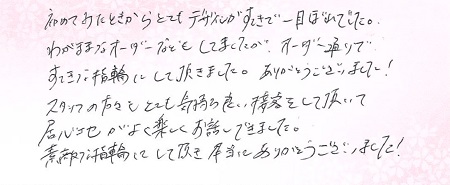 初めてみたときからとてもデザインがすてきで一目ぼれでした。
わがままなオーダーなどもしてましたが、オーダー通りで
すてきな指輪にして頂きました。ありがとうございました!
スタッフの方々もとても気持ち良い接客をして頂いて
居心地がよく楽しくお話しできました。
素敵な指輪にして頂き本当にありがとうございました!